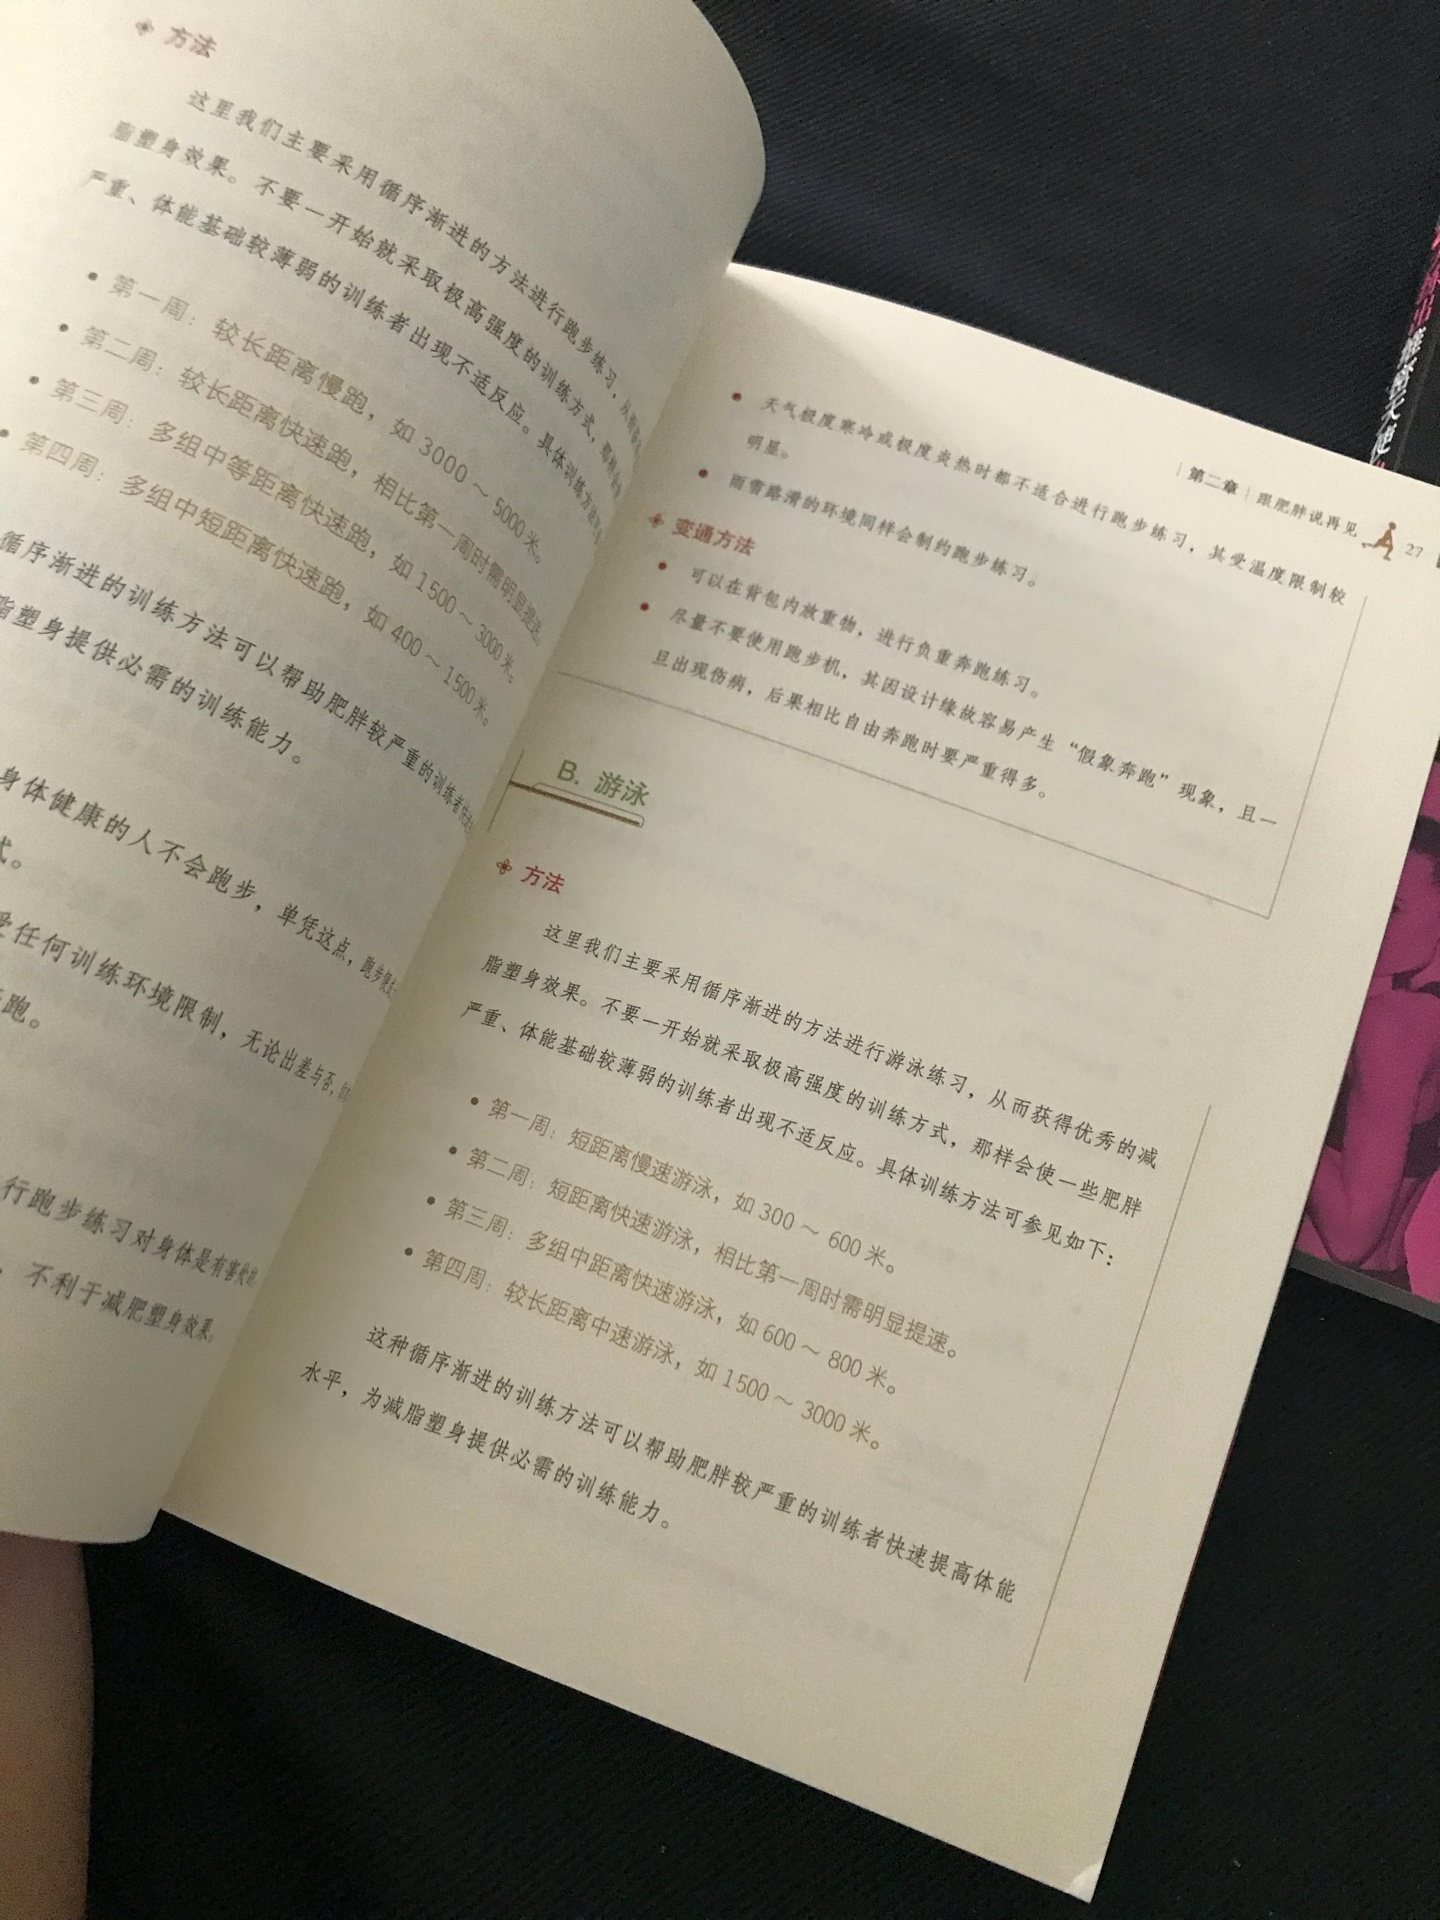 方法
这里我们主要采用循序渐进的方法进行跑步练习，从而获
脂塑身效果。不要一开始就采取极高强度的训练方式，那样会使
严重、体能基础较薄弱的训练者出现不适反应。具体训练方法可
• 第一周：较长距离慢跑，如 3000 ～ 5000 米。
• 第二周：较长距离快速跑，相比第一周时需明显提速。
• 第三周：多组中等距离快速跑，如 1500 ～ 3000 米。
• 第四周：多组中短距离快速跑，如 400 ～ 1500 米。
循序渐进的训练方法可以帮助肥胖较严重的训练者快速
脂塑身提供必需的训练能力。
身体健康的人不会跑步，单凭这点，跑步便
式。
受任何训练环境限制，无论出差与否，
跑。
行跑步练习对身体是有害处的
，不利于减肥塑身效果。
第二章 | 跟肥胖说再见 27
• 天气极度寒冷或极度炎热时都不适合进行跑步练习，其受温度限制较
明显。
• 雨雪路滑的环境同样会制约跑步练习。
变通方法
• 可以在背包内放重物，进行负重奔跑练习。
• 尽量不要使用跑步机，其因设计缘故容易产生“假象奔跑”现象，且一
旦出现伤病，后果相比自由奔跑时要严重得多。
B. 游泳
方法
这里我们主要采用循序渐进的方法进行游泳练习，从而获得优秀的减
脂塑身效果。不要一开始就采取极高强度的训练方式，那样会使一些肥胖
严重、体能基础较薄弱的训练者出现不适反应。具体训练方法可参见如下：
• 第一周：短距离慢速游泳，如 300 ～ 600 米。
• 第二周：短距离快速游泳，相比第一周时需明显提速。
• 第三周：多组中距离快速游泳，如 600 ～ 800 米。
• 第四周：较长距离中速游泳，如 1500 ～ 3000 米。
这种循序渐进的训练方法可以帮助肥胖较严重的训练者快速提高体能
水平，为减脂塑身提供必需的训练能力。